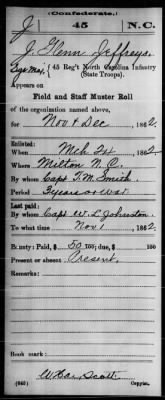 (Confederate.)
J 45 N.C.
J. Glenn Jeffreys
Sgt Maj, 45 Reg't North Carolina Infantry
(State Troops).
Appears on
Field and Staff Muster Roll
of the organization named above,
for Nov & Dec, 1862.
Enlisted:
When Mch 21, 1862.
Where Milton N.C.
By whom Capt T. M. Smith
Period 3 years or war
Last paid:
By whom Capt W. L. Johnston
To what time Nov 1, 1862.
Bounty: Paid, $ 50 100; due, $ 100
Present or absent Present
Remarks:
Book mark:
(640) Copyist.